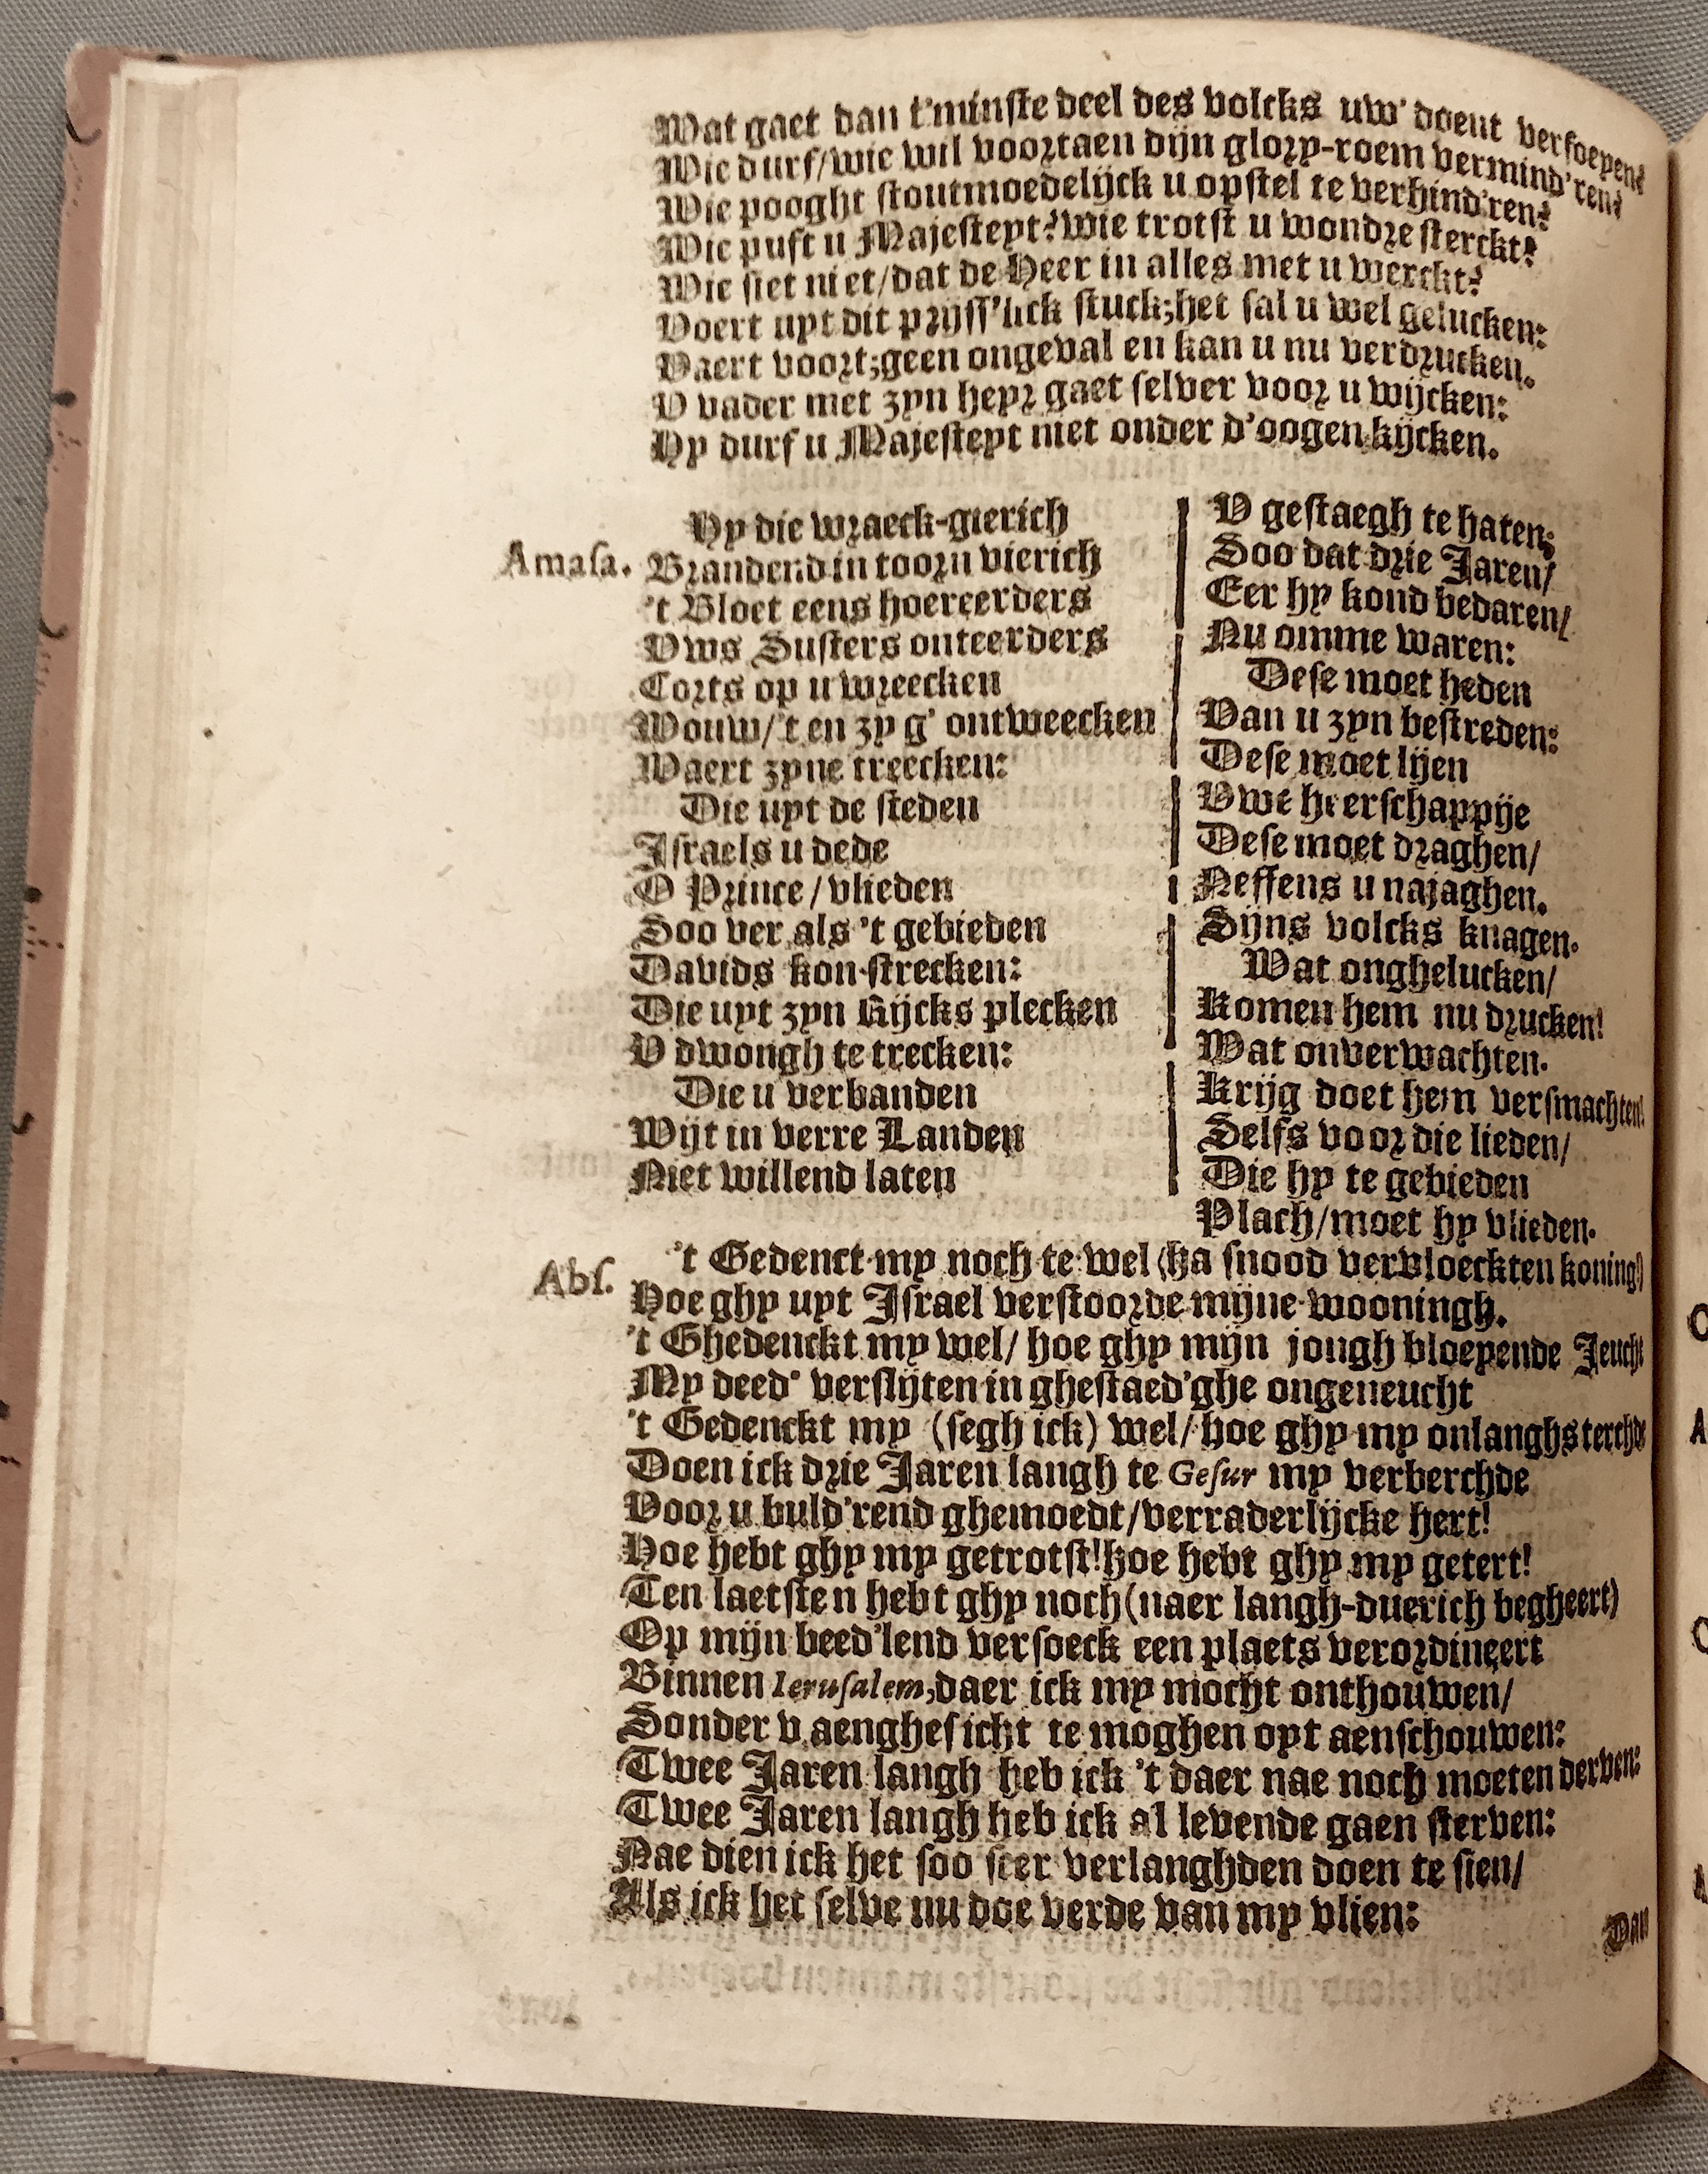 Wat gaet dan t'minste deel des volcks uw' doent versoepen?
Wie durf/wie wil voortaen dijn glory-roem vermind'ren?
Wie pooght stoutmoedelijck u opstel te verhind'ren?
Wie puft u Majesteyt? wie trotst u wondre sterckt?
Wie siet niet/dat de Heer in alles met u werckt?
Voert uyt dit prijss'lick stuck; het sal u wel gelucken:
Vaert voort; geen ongeval en kan u nu verdrucken.
V vader met zyn heyr gaet selver voor u wijcken:
Hy durf u Majesteyt niet onder d'oogen kijcken.
Hy die wraeck-gierich
Amasa. Brandend in toorn vierich
't Bloet eens hoereerders
Vws Susters onteerders
Corts op u wreecken
Wouw/'t en zy g' ontweecken
Waert zyne treecken:
Die uyt de steden
Israels u dede
O Prince/vlieden
Soo ver als 't gebieden
Davids kon strecken:
Die uyt zyn Rijcks plecken
V dwongh te trecken:
Die u verbanden
Wijt in verre Landen
Niet willend laten
V gestaegh te haten;
Soo dat drie Jaren/
Eer hy kond bedaren/
Nu omme waren:
Dese moet heden
Van u zyn bestreden:
Dese moet lijen
Vwe heerschappije
Dese moet draghen/
Neffens u najaghen.
Sijns volcks knagen.
Wat onghelucken/
Komen hem nu drucken!
Wat onverwachten.
Krijg doet hem versmachten!
Selfs voor die lieden/
Die hy te gebieden
Plach/moet hy vlieden.
Abs. 't Gedenct my noch te wel (ha snood vervloeckten koning!)
Hoe ghy uyt Israel verstoorde mijne wooningh.
't Ghedenckt my wel/ hoe ghy mijn jongh bloeyende Jeucht
My deed' verslijten in ghestaed'ghe ongeneucht
't Gedenckt my (segh ick) wel/ hoe ghy my onlanghs terchde
Doen ick drie Jaren langh te Gesur my verberchde
Voor u buld'rend ghemoedt/verraderlijcke hert!
Hoe hebt ghy my getrotst! hoe hebt ghy my getert!
Ten laetsten hebt ghy noch (naer langh-duerich begheert)
Op mijn beed'lend versoeck een plaets verordineert
Binnen Ierusalem, daer ick my mocht onthouwen/
Sonder v aenghesicht te moghen oyt aenschouwen:
Twee Jaren langh heb ick 't daer nae noch moeten derven:
Twee Jaren langh heb ick al levende gaen sterven:
Nae dien ick het soo seer verlanghden doen te sien/
Als ick het selve nu doe verde van my vlien:
Dan